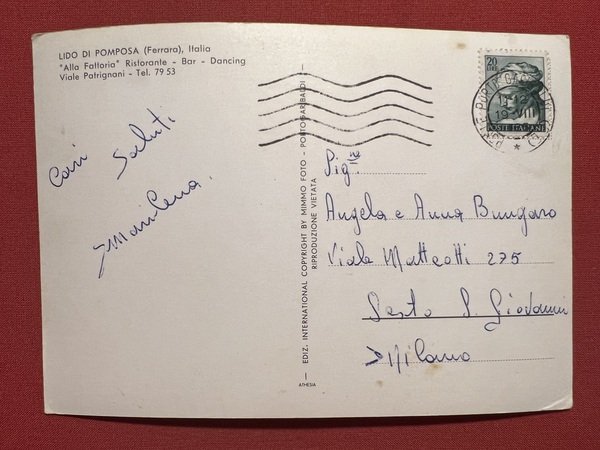 LIDO DI POMPOSA (Ferrara), Italia
"Alla Fattoria" Ristorante - Bar - Dancing
Viale Patrignani - Tel. 79 53
Cari Saluti
Marilena.
EDIZ. INTERNATIONAL COPYRIGHT BY MIMMO FOTO - PORTO GARIBALDI
RIPRODUZIONE VIETATA
ATHESIA
20
LIRE
POSTE ITALIANE
Sig.ne
Angela e Anna Bungaro
Viale Matteotti 275
Sesto S. Giovanni
Milano